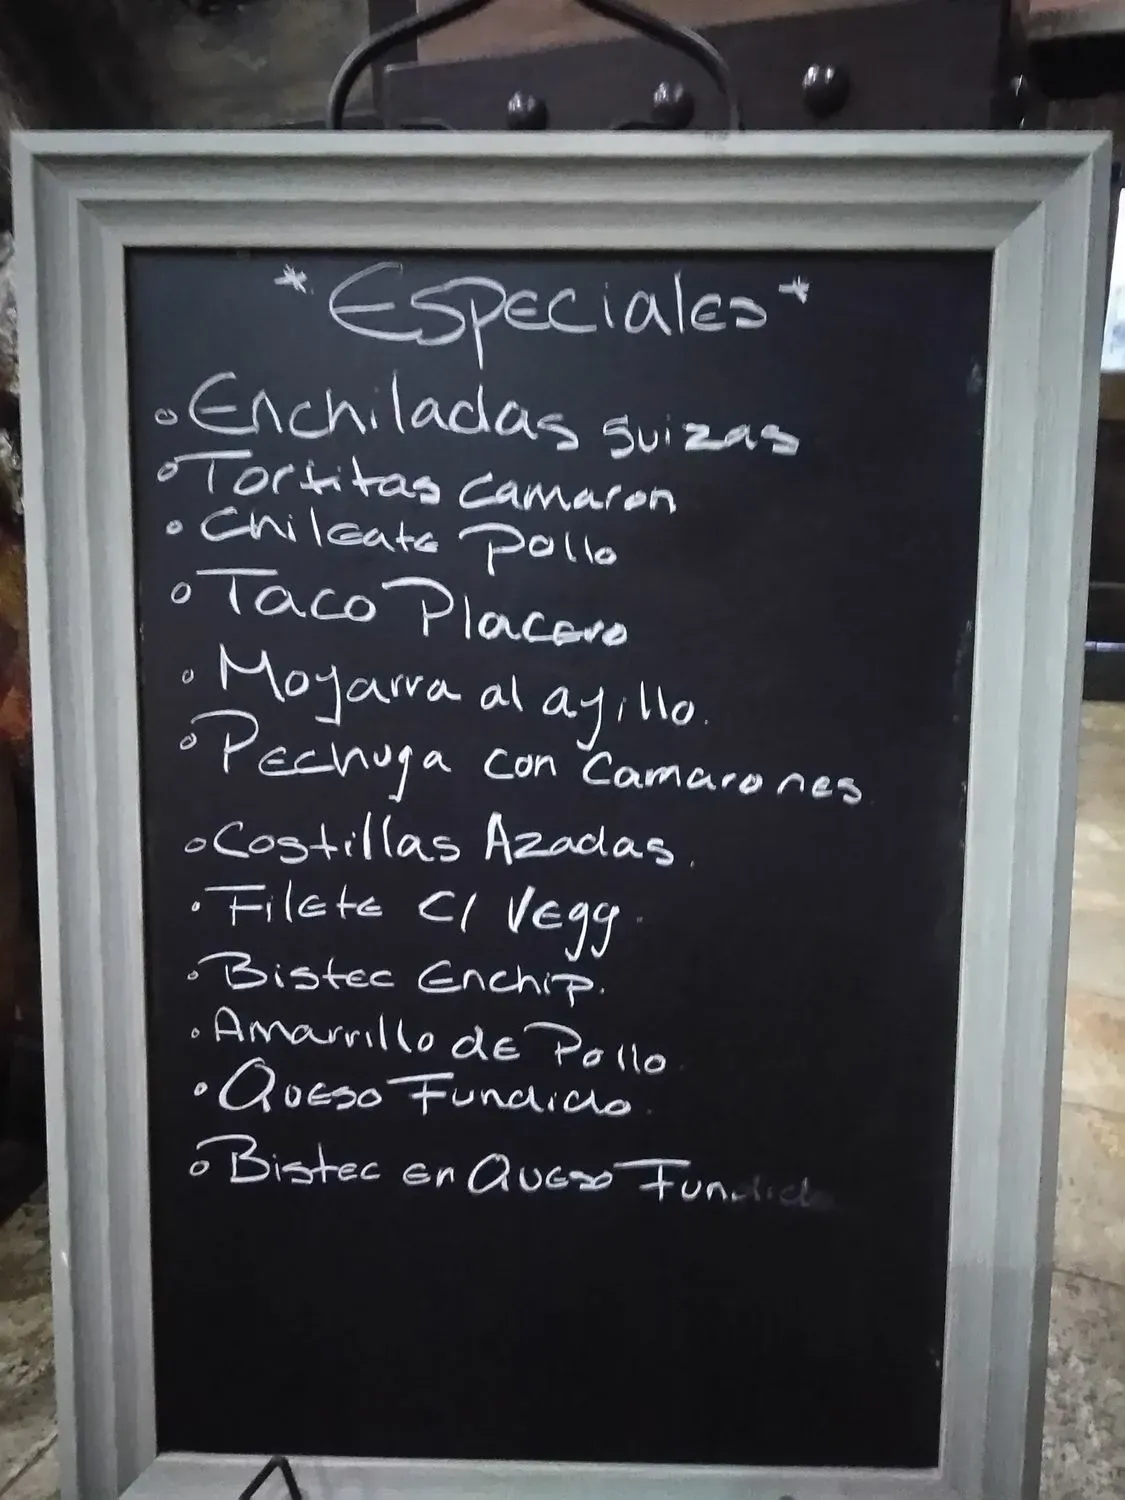 *Especiales*
Enchiladas suizas
Tortitas camaron
Chileate Pollo
Taco Placero
Moyarra al ayillo.
Pechuga con Camarones
Costillas Azadas.
Filete C/ Vegg.
Bistec Enchip.
Amarrillo de Pollo
Queso Fundido.
Bistec en Queso Fundido